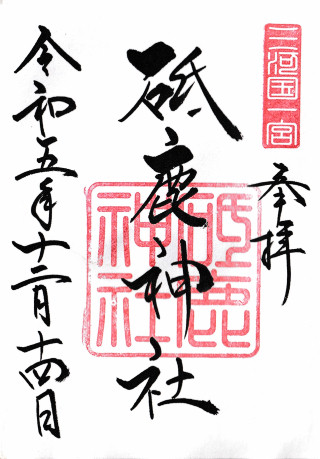 三河国一宮
奉拝
砥鹿神社
砥鹿神社
令和五年十二月十四日